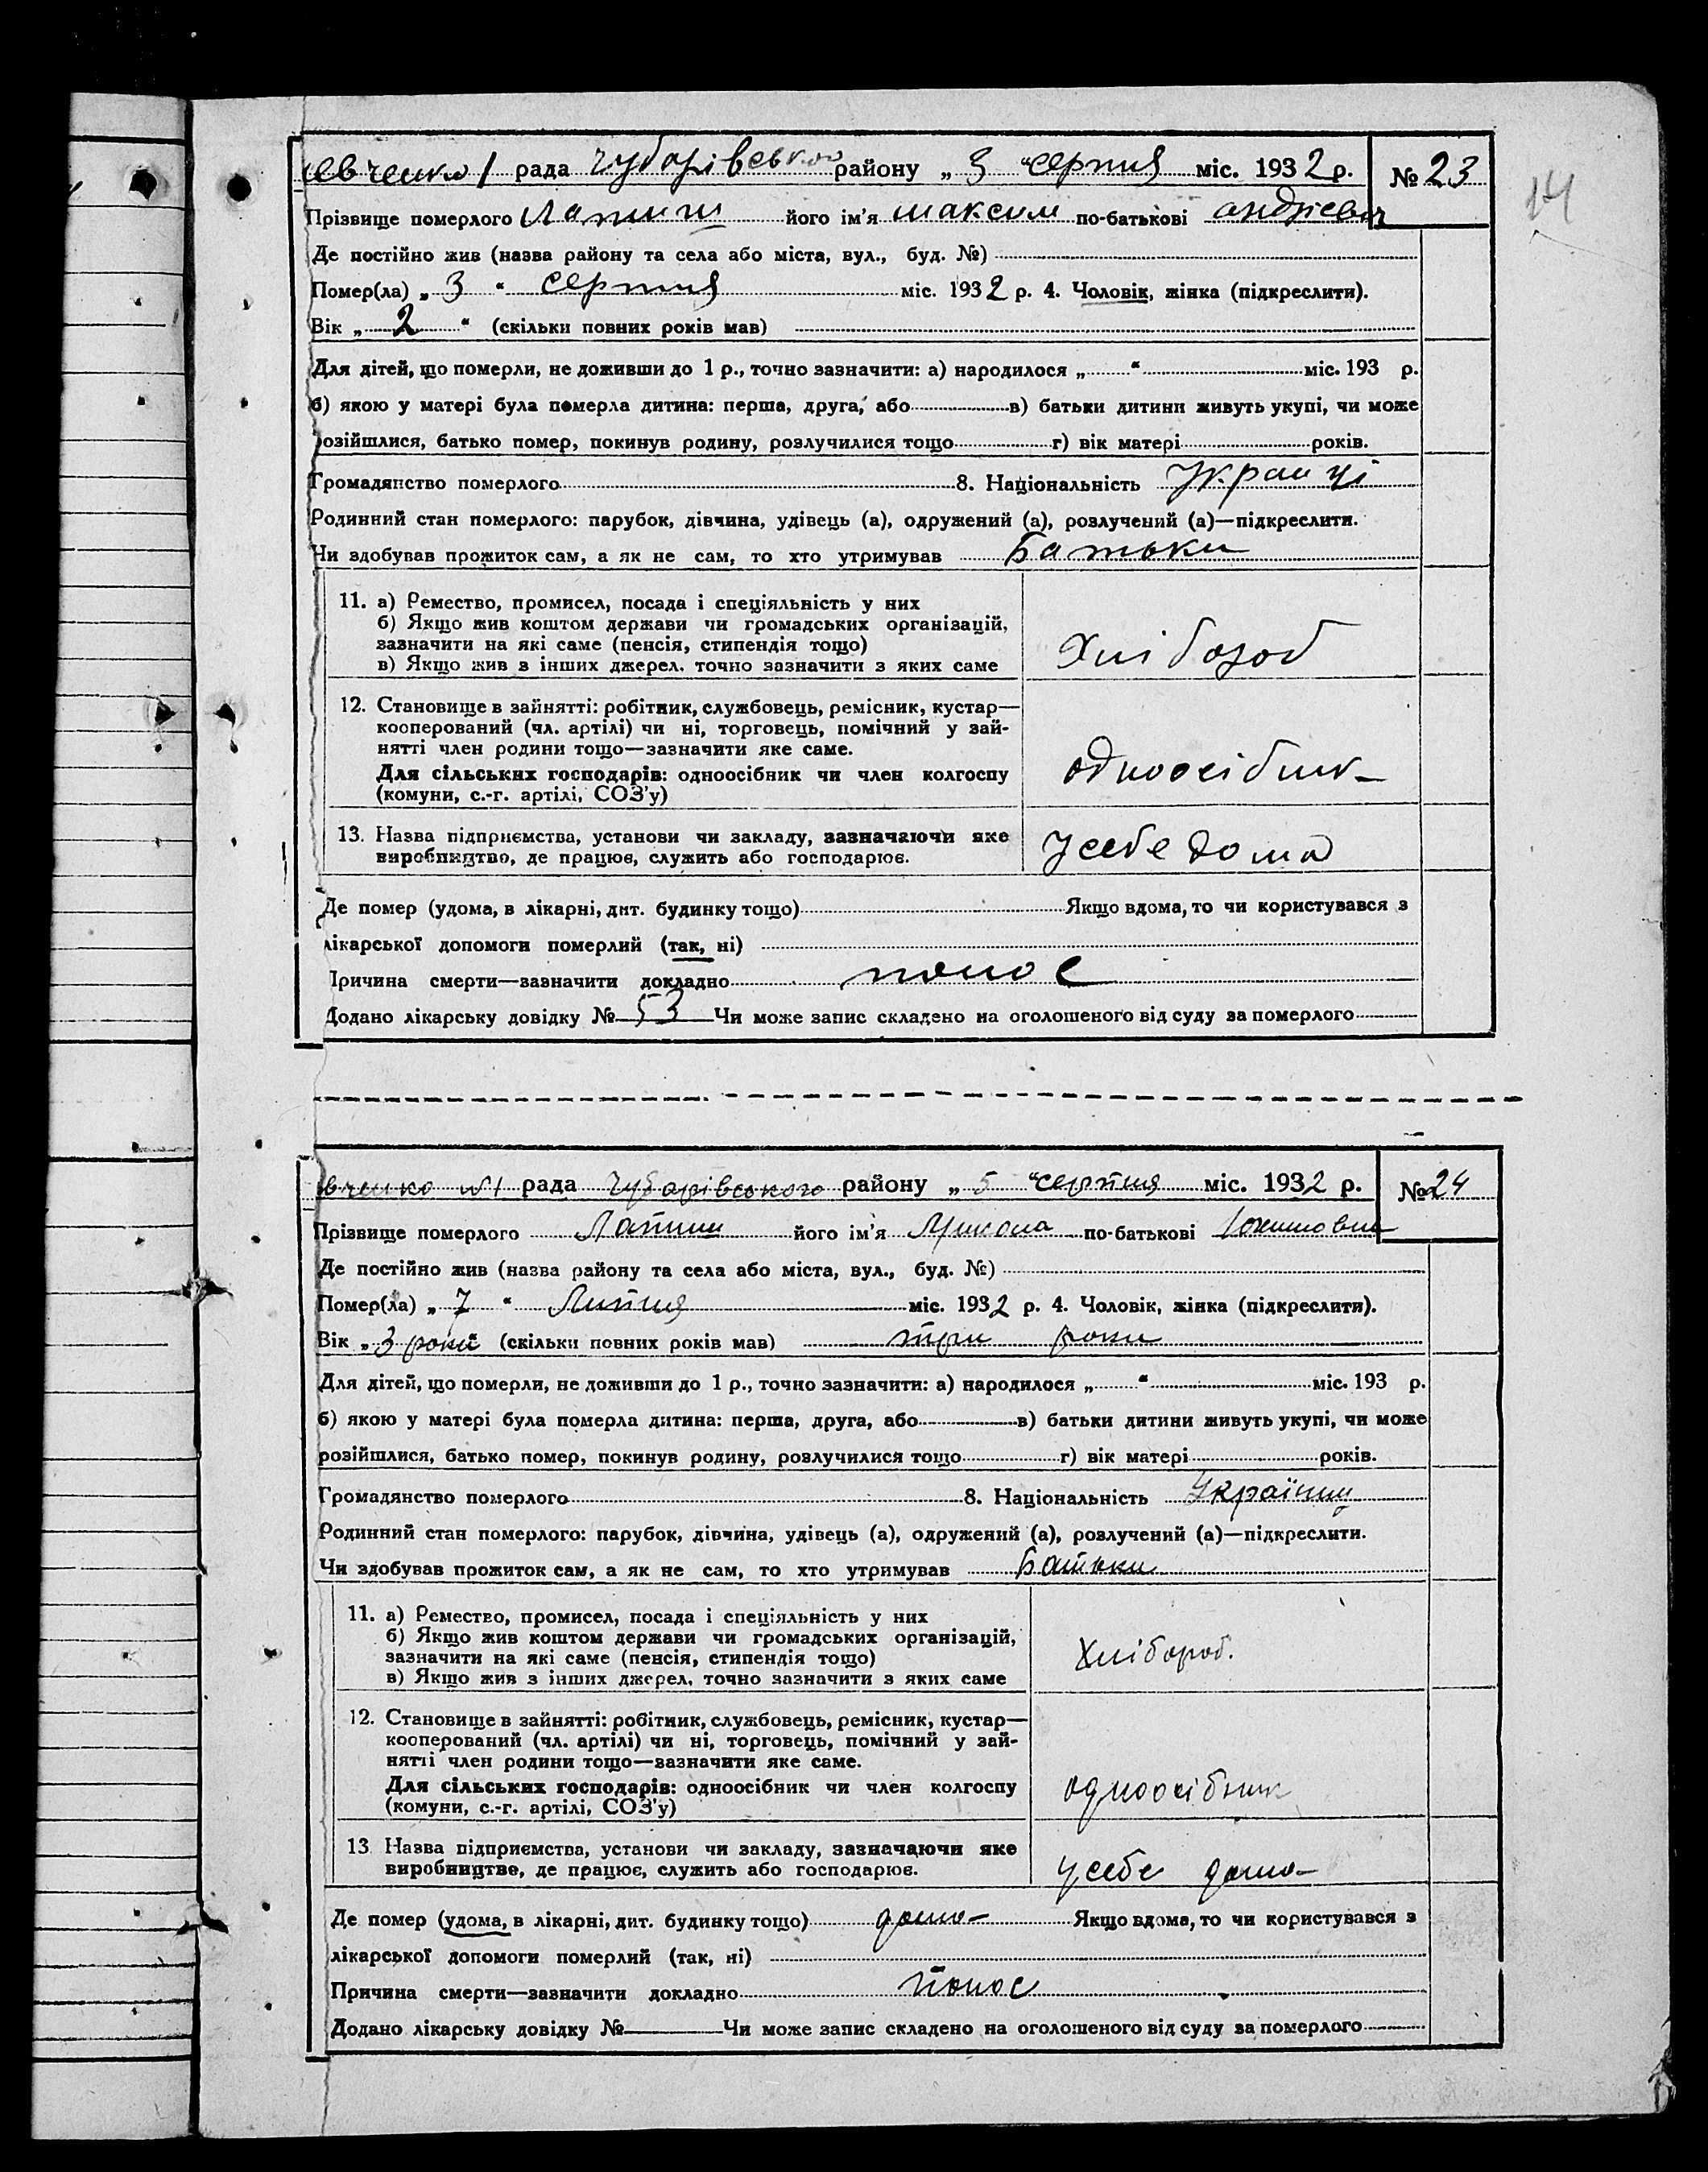 евченко 1 рада Чубарівського району „ 3 “ серпня міс. 1932 р. № 23
14
Прізвище померлого Латиш його ім’я Максим по-батькові Андрієвич
Де постійно жив (назва району та села або міста, вул., буд. №)
Помер(ла) „ 3 “ серпня міс. 1932 р. 4. Чоловік, жінка (підкреслити).
Вік „ 2 “ (скільки повних років мав)
Для дітей, що померли, не доживши до 1 р., точно зазначити: а) народилося „ “ міс. 193 р.
б) якою у матері була померла дитина: перша, друга, або в) батьки дитини живуть укупі, чи може
розійшлися, батько помер, покинув родину, розлучилися тощо г) вік матері років.
Громадянство померлого 8. Національність Украинці
Родинний стан померлого: парубок, дівчина, удівець (а), одружений (а), розлучений (а)—підкреслити.
Чи здобував прожиток сам, а як не сам, то хто утримував Батьки
11. а) Ремество, промисел, посада і спеціяльність у них
б) Якщо жив коштом держави чи громадських організацій,
зазначити на які саме (пенсія, стипендія тощо)
в) Якщо жив з інших джерел, точно зазначити з яких саме
Хлібороб
12. Становище в зайнятті: робітник, службовець, ремісник, кустар—
кооперований (чл. артілі) чи ні, торговець, помічний у зай-
нятті член родини тощо—зазначити яке саме.
Для сільських господарів: одноосібник чи член колгоспу
(комуни, с.-г. артілі, СОЗ’у)
одноосібник
13. Назва підприємства, установи чи закладу, зазначаючи яке
виробництво, де працює, служить або господарює.
У себе дома
Де помер (удома, в лікарні, дит. будинку тощо) Якщо вдома, то чи користувався з
лікарської допомоги померлий (так, ні)
Причина смерти—зазначити докладно понос
Додано лікарську довідку № 53 Чи може запис складено на оголошеного від суду за померлого
вченко №1 рада Чубарівського району „ 5 “ серпня міс. 1932 р. № 24
Прізвище померлого Латиш його ім’я Микола по-батькові
Де постійно жив (назва району та села або міста, вул., буд. №)
Помер(ла) „ 7 “ Липня міс. 1932 р. 4. Чоловік, жінка (підкреслити).
Вік „ 3 роки “ (скільки повних років мав) три роки
Для дітей, що померли, не доживши до 1 р., точно зазначити: а) народилося „ “ міс. 193 р.
б) якою у матері була померла дитина: перша, друга, або в) батьки дитини живуть укупі, чи може
розійшлися, батько помер, покинув родину, розлучилися тощо г) вік матері років.
Громадянство померлого 8. Національність Українці
Родинний стан померлого: парубок, дівчина, удівець (а), одружений (а), розлучений (а)—підкреслити.
Чи здобував прожиток сам, а як не сам, то хто утримував Батьки
11. а) Ремество, промисел, посада і спеціяльність у них
б) Якщо жив коштом держави чи громадських організацій,
зазначити на які саме (пенсія, стипендія тощо)
в) Якщо жив з інших джерел, точно зазначити з яких саме
Хлібороб.
12. Становище в зайнятті: робітник, службовець, ремісник, кустар—
кооперований (чл. артілі) чи ні, торговець, помічний у зай-
нятті член родини тощо—зазначити яке саме.
Для сільських господарів: одноосібник чи член колгоспу
(комуни, с.-г. артілі, СОЗ’у)
одноосібник
13 Назва підприємства, установи чи закладу, зазначаючи яке
виробництво, де працює, служить або господарює.
У себе дома
Де помер (удома, в лікарні, дит. будинку тощо) дома Якщо вдома, то чи користувався з
лікарської допомоги померлий (так, ні)
Причина смерти—зазначити докладно понос
Додано лікарську довідку № Чи може запис складено на оголошеного від суду за померлого